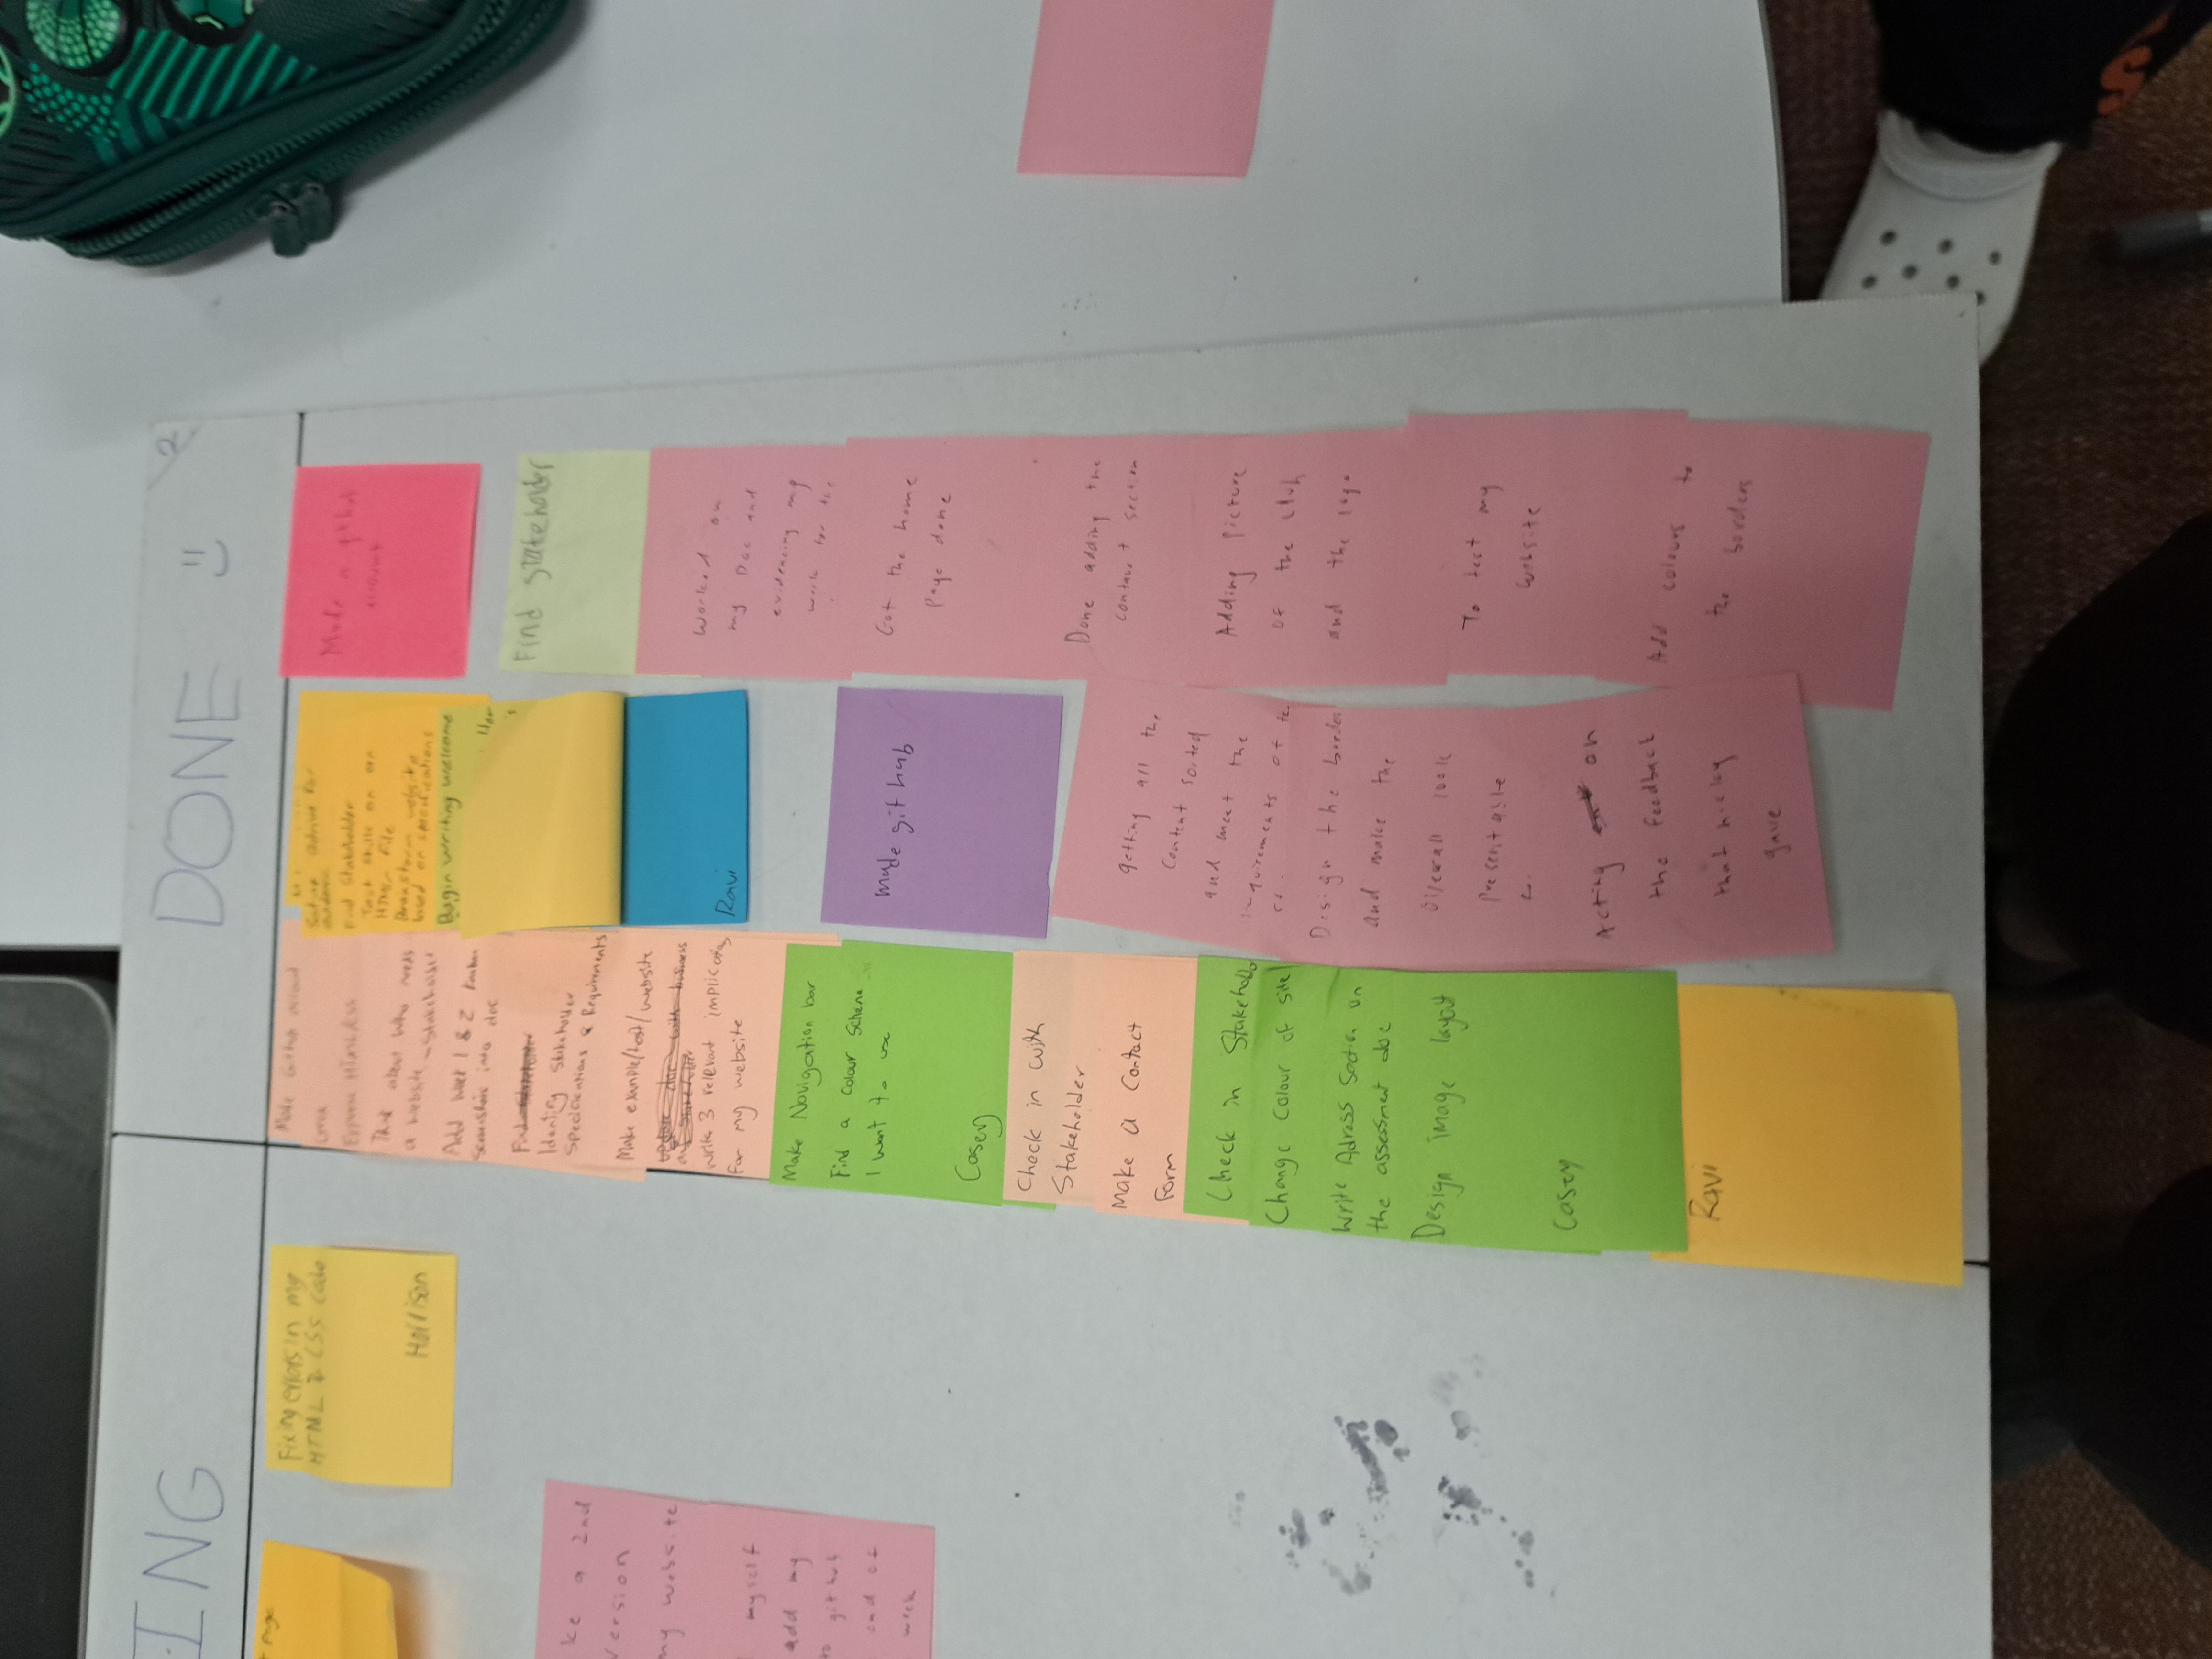 ING
DONE
2
page
Fixing errors in my
HTML & CSS code
Harrison
ke a 2nd
version
my website
myself
add my
to github
end of
week
Make Github account
Think about who needs
a website - Stakeholder
Add week 1 & 2 Kanban
screenshots into doc
Find Stakeholder
Identify Stakeholder
Specifications & Requirements
Make example/test/website
update doc with business
and Stakeholder
write 3 relevant implications
for my website
Make Navigation bar
Find a colour scheme
I want to use
Casey
Check in with
Stakeholder
Make a Contact
Form
Check in Stakeholder
Change Colour of site
Write Adress Section on
the assessment doc
Design image layout
Casey
Ravi
Find Stakeholder
Test skills on an
HTML file
Brainstorm website
based on specifications
Begin writing welcome
Ravi
made git hub
getting all the
content sorted
and meet the
requirements of the
Design the border
and make the
overall look
presentable
Acting on
the feedback
that nicky
gave
Made a github
account
Find stakeholder
Worked on
my Doc and
evidencing my
work for the
Got the home
page done
Done adding the
contact section
Adding picture
of the club
and the logo
To test my
website
Add colours to
the borders